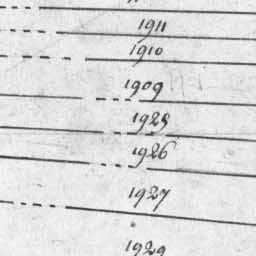 1911
1910
1909
1925
1926
1927
1929